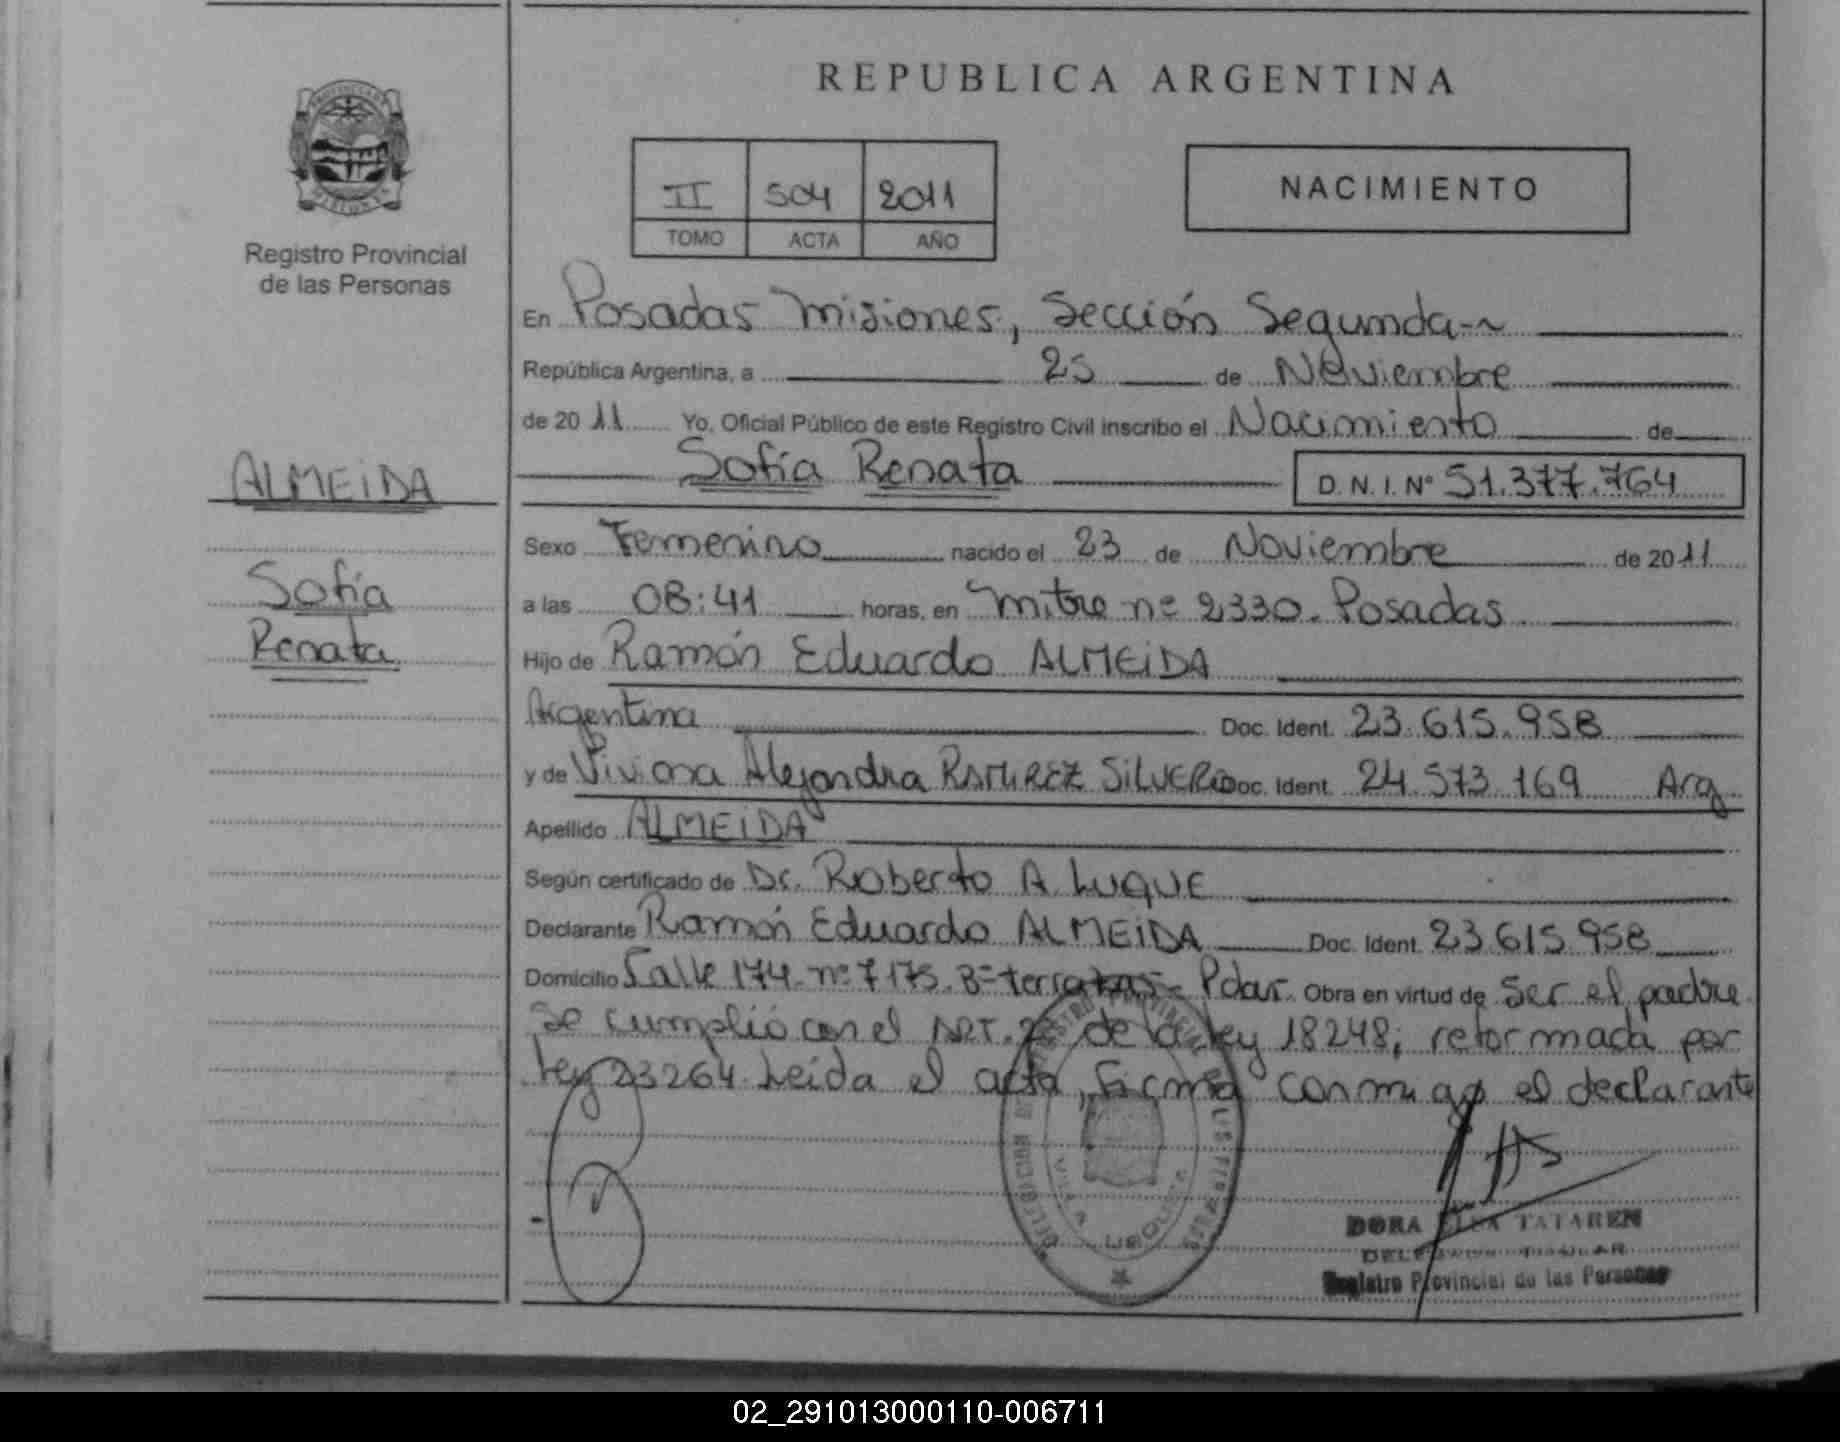 REPUBLICA ARGENTINA
II 504 2011
TOMO ACTA AÑO
NACIMIENTO
Registro Provincial
de las Personas
ALMEIDA
Sofía
Renata
En Posadas Misiones, Sección Segunda
República Argentina, a 25 de Noviembre
de 2011 Yo, Oficial Público de este Registro Civil inscribo el Nacimiento de
Sofía Renata D.N.I. Nº 51.377.764
Sexo Femenino nacido el 23 de Noviembre de 2011
a las 08:41 horas, en Mitre nº 2330. Posadas
Hijo de Ramón Eduardo ALMEIDA
Argentina Doc. Ident. 23.615.958
y de Viviana Alejandra RAMIREZ SILVERO Doc. Ident. 24.573.169 Arg.
Apellido ALMEIDA
Según certificado de Dr. Roberto A. LUQUE
Declarante Ramón Eduardo ALMEIDA Doc. Ident. 23.615.958
Domicilio Calle 174. nº 7175. Bº terrazas - Pdas. Obra en virtud de Ser el padre.
Se cumplió con el ART. 2º de la ley 18248; reformada por
ley 23264. Leída el acta, firma conmigo el declarante
DELEGACION
VILLA URQUIZA
DORA ELSA TATAREN
Registro Provincial de las Personas
02_291013000110-006711